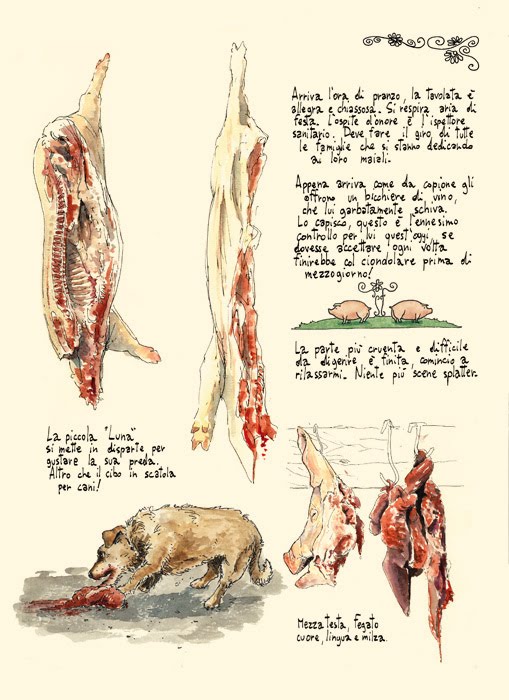 Arriva l'ora di pranzo, la tavolata è
allegra e chiassosa. Si respira aria di
festa. L'ospite d'onore è l'ispettore
sanitario. Deve fare il giro di tutte
le famiglie che si stanno dedicando
ai loro maiali.
Appena arriva come da copione gli
offrono un bicchiere di vino,
che lui garbatamente schiva.
Lo capisco, questo è l'ennesimo
controllo per lui quest'oggi, se
dovesse accettare ogni volta
finirebbe col ciondolare prima di
mezzogiorno!
La parte più cruenta e difficile
da digerire è finita, comincio a
rilassarmi. Niente più scene splatter.
La piccola "Luna"
si mette in disparte per
gustare la sua preda.
Altro che il cibo in scatola
per cani!
Mezza testa, fegato
cuore, lingua e milza.